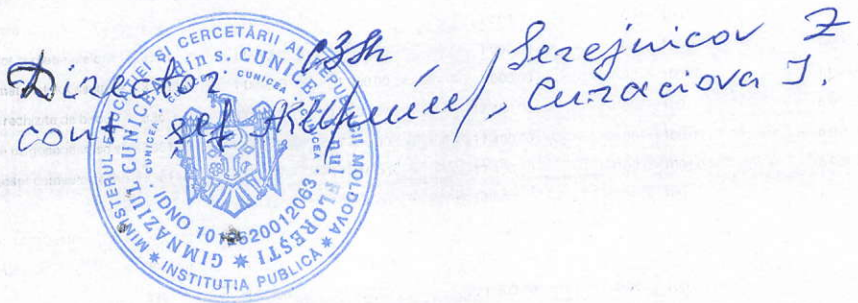 Director Serejnicov Z
cont. șef Curaciova I.
MINISTERUL EDUCAȚIEI ȘI CERCETĂRII AL REPUBLICII MOLDOVA
* INSTITUȚIA PUBLICĂ *
GIMNAZIUL CUNICEA din s. CUNICEA FLOREȘTI *
CUNICEA CUNICEA CUNICEA
IDNO